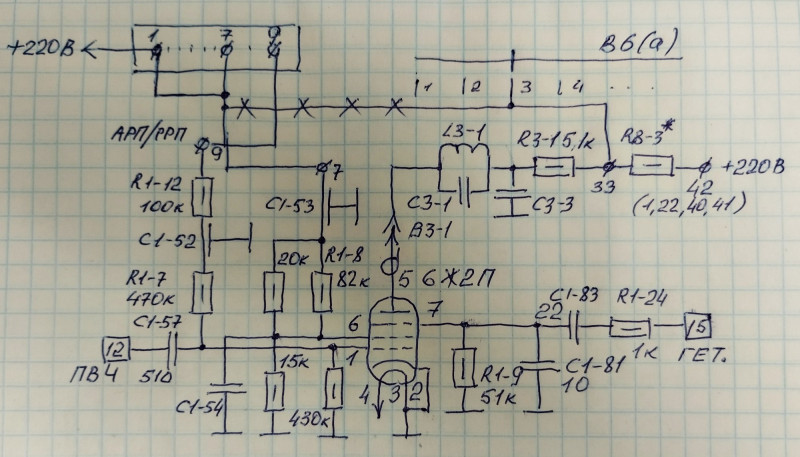 1 7 9
+220В
В6(а)
1 2 3 4 ....
АРП/РРП
9
7
L3-1
R3-1 5,1к
R8-3*
33
42
+220В
(1,22,40,41)
R1-12
100к
C1-53
C3-1
C3-3
В3-1
C1-52
20к
R1-8
82к
5 6Ж2П
R1-7
470к
C1-57
510
12
ПВЧ
6
1
7
22
C1-83
R1-24
1к
15
ГЕТ.
C1-54
15к
430к
4 3 2
R1-9
51к
C1-81
10